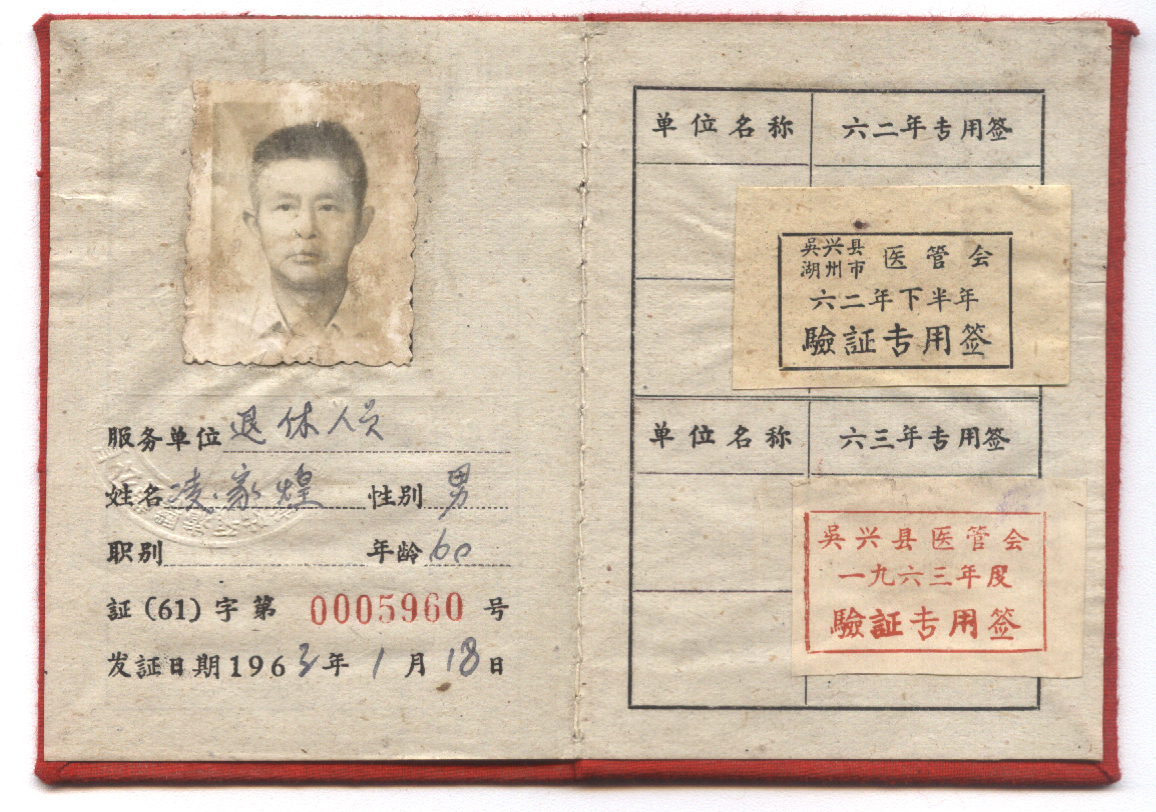 服务单位 退休人员
姓名 凌家煌 性别 男
职别 年龄 60
証(61)字第 0005960 号
发証日期1963年1月18日
单位名称 六二年专用签
吳兴县
湖州市 医管会
六二年下半年
驗証专用签
单位名称 六三年专用签
吳兴县医管会
一九六三年度
驗証专用签